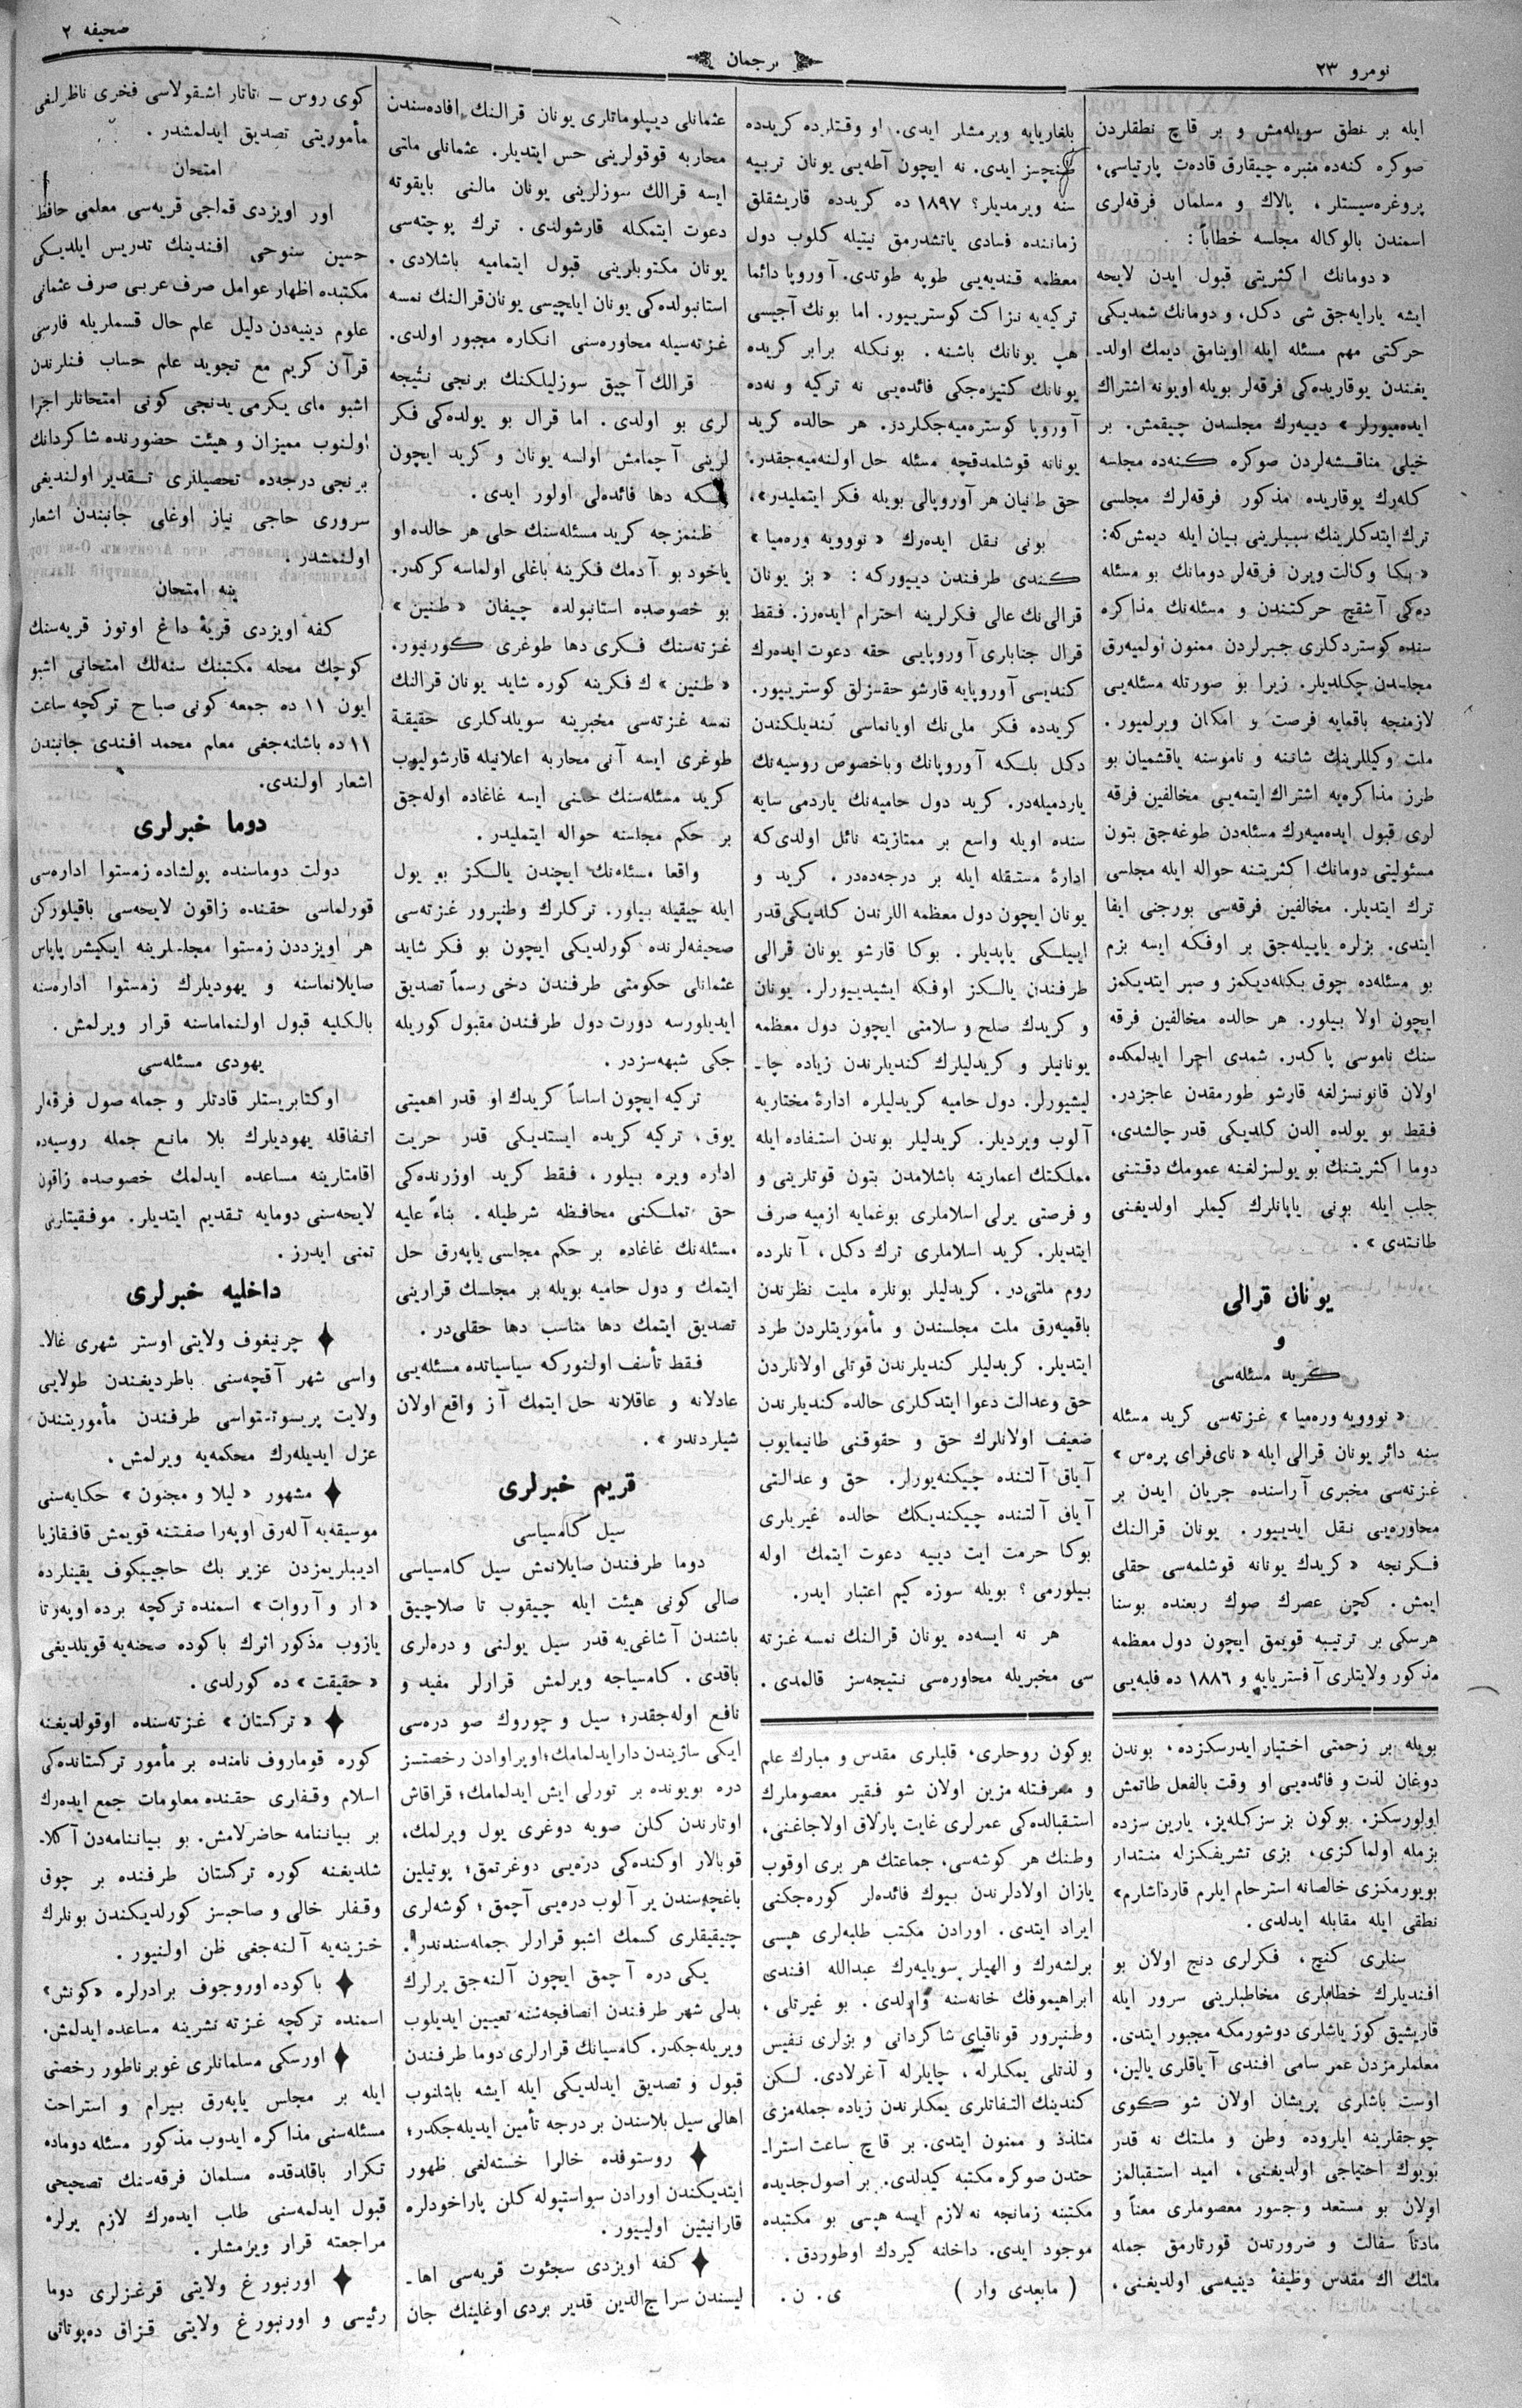 نومرو ٢٣
ترجمان
صحیفه ٢
ایله بر نطق سویله‌مش و بر قاچ نطقلردن
صوكره كنه‌ده منبره چیقارق قاده‌ت پارتیاسی،
پروغره‌سیستلر، پالاك و مسلمان فرقه‌لری
اسمندن بالوكاله مجلسه خطاباً :
« دومانك اكثریتی قبول ایدن لایحه
ایشه یارایه‌جق شی دكل، و دومانك شمدیكی
حركتی مهم مسئله ایله اوینامق دیمك اولد-
یغندن یوقاریده‌كی فرقه‌لر بویله اویونه اشتراك
ایده‌میورلر » دییه‌رك مجلسدن چیقمش. بر
خیلی مناقشه‌لردن صوكره كنه‌ده مجلسه
كله‌رك یوقاریده مذكور فرقه‌لرك مجلسی
ترك ایتدكلرینك سببلرینی بیان ایله دیمش‌كه:
« بكا وكالت ویرن فرقه‌لر دومانك بو مسئله
ده‌كی آشقچ حركتندن و مسئله‌نك مذاكره
سنده كوستردكلری جبرلردن ممنون اولمیه‌رق
مجلسدن چكلدیلر. زیرا بو صورتله مسئله‌یی
لازمنجه باقمایه فرصت و امكان ویرلمیور.
ملت وكیللرینك شاننه و ناموسنه یاقشمیان بو
طرز مذاكره‌یه اشتراك ایتمه‌یی مخالفین فرقه
لری قبول ایده‌میه‌رك مسئله‌دن طوغه‌جق بتون
مسئولیتی دومانك اكثریتنه حواله ایله مجلسی
ترك ایتدیلر. مخالفین فرقه‌سی بورجنی ایفا
ایتدی. بزلره یاپیله‌جق بر اوفكه ایسه بزم
بو مسئله‌ده چوق بكله‌دیكمز و صبر ایتدیكمز
ایچون اولا بیلور. هر حالده مخالفین فرقه
سنك ناموسی پاكدر. شمدی اجرا ایدلمكده
اولان قانونسزلغه قارشو طورمقدن عاجزدر.
فقط بو یولده الدن كلدیكی قدر چالشدی،
دوما اكثریتنك بو یولسزلغنه عمومك دقتنی
جلب ایله بونی یاپانلرك كیملر اولدیغنی
طانتدی » .
یونان قرالی
و
كرید مسئله‌سی
« نوویه وره‌میا » غزته‌سی كرید مسئله
سنه دائر یونان قرالی ایله « نای‌فرای پره‌س »
غزته‌سی مخبری آراسنده جریان ایدن بر
محاوره‌یی نقل ایدییور. یونان قرالنك
فكرنجه « كریدك یونانه قوشلمه‌سی حقلی
ایمش. كچن عصرك صوك ربعنده بوسنا
هرسكی بر ترتیبه قویمق ایچون دول معظمه
مذكور ولایتلری آفستریایه و ١٨٨٦ ده فلبه‌یی
بویله بر زحمتی اختیار ایدرسكزده، بوندن
دوغان لذت و فائده‌یی او وقت بالفعل طاتمش
اولورسكز. بوكون بز سزكله‌یز، یارین سزده
بزمله اولماكزی، بزی تشریفكزله منتدار
بویورمكزی خالصانه استرحام ایلرم قارداشلرم»
نطقی ایله مقابله ایدلدی.
سنلری كنج ، فكرلری دنج اولان بو
افندیلرك خطابلری مخاطبلرینی سرور ایله
قاریشیق كوز یاشلری دوشورمكه مجبور ایتدی.
معلملرمزدن عمر سامی افندی آیاقلری یالین،
اوست باشلری پریشان اولان شو كوی
چوجقلرینه ایلروده وطن و ملتك نه قدر
بویوك احتیاجی اولدیغنی، امید استقبالمز
اولان بو مستعد و جسور معصوملری معناً و
مادتاً سفالت و ضرورتدن قورتارمق جمله
ملتك اك مقدس وظیفهٔ دینیه‌سی اولدیغنی،
بلغاریایه ویرمشلر ایدی. او وقتلرده كریده
سنه ویرمدیلر؟ ١٨٩٧ ده كریدده قاریشقلق
زماننده فسادی یاتشدرمق نیتیله كلوب دول
معظمه قندیه‌یی طوپه طوتدی. آوروپا دائما
تركیه‌یه نزاكت كوسترییور. اما بونك آجیسی
هپ یونانك باشنه. بونكله برابر كریده
یونانك كتیره‌جكی فائده‌یی نه تركیه و نه‌ده
آوروپا كوستره‌میه‌جكلردر. هر حالده كرید
یونانه قوشلمدقچه مسئله حل اولنه‌میه‌جقدر.
حق طانیان هر آوروپالی بویله فكر ایتملیدر»،
بونی نقل ایده‌رك « نوویه وره‌میا »
كندی طرفندن دییوركه : « بز یونان
قرالی‌نك عالی فكرلرینه احترام ایده‌رز. فقط
قرال جنابلری آوروپایی حقه دعوت ایده‌رك
كندیسی آوروپایه قارشو حقسزلق كوسترییور.
كریدده فكر ملی‌نك اویانماسی كندیلكندن
دكل بلكه آوروپانك و باخصوص روسیه‌نك
یاردمیله‌در. كرید دول حامیه‌نك یاردمی سایه
سنده اویله واسع بر ممتازیته نائل اولدی‌كه
ادارهٔ مستقله ایله بر درجه‌ده‌در. كرید و
یونان ایچون دول معظمه اللرندن كلدیكی قدر
اییلكی یاپدیلر. بوكا قارشو یونان قرالی
طرفندن یالكز اوفكه ایشیدییورلر. یونان
و كریدك صلح و سلامتی ایچون دول معظمه
یونانیلر و كریدلیلرك كندیلرندن زیاده چا-
لیشیورلر. دول حامیه كریدلیلره ادارهٔ مختاریه
آلوب ویردیلر. كریدلیلر بوندن استفاده ایله
مملكتك اعمارینه باشلامدن بتون قوتلرینی و
و فرصتی یرلی اسلاملری بوغمایه ازمیه صرف
ایتدیلر. كرید اسلاملری ترك دكل، آنلرده
روم ملتی‌در. كریدلیلر بونلره ملیت نظرندن
باقمیه‌رق ملت مجلسندن و مأموریتلردن طرد
ایتدیلر. كریدلیلر كندیلرندن قوتلی اولانلردن
حق و عدالت دعوا ایتدكلری حالده كندیلرندن
ضعیف اولانلرك حق و حقوقنی طانیمایوب
آیاق آلتنده چیكنه‌یورلر. حق و عدالتی
آیاق آلتنده چیكندیكك حالده غیریلری
بوكا حرمت ایت دییه دعوت ایتمك اوله
بیلورمی؟ بویله سوزه كیم اعتبار ایدر.
هر نه ایسه‌ده یونان قرالنك نمسه غزته
سی مخبریله محاوره‌سی نتیجه‌سز قالمدی.
بوكون روحلری، قلبلری مقدس و مبارك علم
و معرفتله مزین اولان شو فقیر معصوملرك
استقبالده‌كی عمرلری غایت پارلاق اولاجاغنی،
وطنك هر كوشه‌سی، جماعتك هر بری اوقوب
یازان اولادلرندن بیوك فائده‌لر كوره‌جكنی
ایراد ایتدی. اورادن مكتب طلبه‌لری هپسی
برلشه‌رك و الهیلر سویلیه‌رك عبدالله افندی
ابراهیموفك خانه‌سنه وارلدی. بو غیرتلی،
وطنپرور قوناقبای شاكردانی و بزلری نفیس
و لذتلی یمكلرله، چایلرله آغرلادی. لكن
كندینك التفاتلری یمكلرندن زیاده جمله‌مزی
متلذذ و ممنون ایتدی. بر قاچ ساعت استرا-
حتدن صوكره مكتبه كیدلدی. بر اصول‌جدیده
مكتبنه زمانجه نه لازم ایسه هپسی بو مكتبده
موجود ایدی. داخلنه كیردك اوطوردق.
( مابعدی وار )
ی. ن.
عثمانلی دیپلوماتلری یونان قرالنك افاده‌سندن
محاربه قوقولرینی حس ایتدیلر. عثمانلی ملتی
ایسه قرالك سوزلرینی یونان مالنی بایقوته
دعوت ایتمكله قارشولدی. ترك پوچته‌سی
یونان مكتوبلرینی قبول ایتمامیه باشلادی.
استانبولده‌كی یونان ایلچیسی یونان قرالنك نمسه
غزته‌سیله محاوره‌سنی انكاره مجبور اولدی.
قرالك آچیق سوزلیلكنك برنجی نتیجه
لری بو اولدی. اما قرال بو یولده‌كی فكر
لرینی آچمامش اولسه یونان و كرید ایچون
بلكه دها فائده‌لی اولور ایدی.
ظنمزجه كرید مسئله‌سنك حلی هر حالده او
یاخود بو آدمك فكرینه باغلی اولماسه كركدر.
بو خصوصده استانبولده چیقان « طنین »
غزته‌سنك فكری دها طوغری كورنیور.
« طنین » ك فكرینه كوره شاید یونان قرالنك
نمسه غزته‌سی مخبرینه سویلدكلری حقیقة
طوغری ایسه آنی محاربه اعلانیله قارشولیوب
كرید مسئله‌سنك حلنی ایسه غاغاده اوله‌جق
بر حكم مجلسنه حواله ایتملیدر.
واقعا مسئله‌نك ایچندن یالكز بو یول
ایله چیقیله بیلور. تركلرك وطنپرور غزته‌سی
صحیفه‌لرنده كورلدیكی ایچون بو فكر شاید
عثمانلی حكومتی طرفندن دخی رسماً تصدیق
ایدیلورسه دورت دول طرفندن مقبول كوریله
جكی شبهه‌سزدر.
تركیه ایچون اساساً كریدك او قدر اهمیتی
یوق، تركیه كریده ایستدیكی قدر حریت
اداره ویره بیلور، فقط كرید اوزرنده‌كی
حق تملكنی محافظه شرطیله. بناءً علیه
مسئله‌نك غاغاده بر حكم مجلسی یاپه‌رق حل
ایتمك و دول حامیه بویله بر مجلسك قرارینی
تصدیق ایتمك دها مناسب دها حقلی‌در.
فقط تأسف اولنوركه سیاسیاتده مسئله‌یی
عادلانه و عاقلانه حل ایتمك آز واقع اولان
شیلردندر » .
قریم خبرلری
سیل كامسیاسی
دوما طرفندن صایلانمش سیل كامسیاسی
صالی كونی هیئت ایله چیقوب تا صلاچیق
باشندن آشاغی‌یه قدر سیل یولنی و دره‌لری
باقدی. كامسیاجه ویرلمش قرارلر مفید و
نافع اوله‌جقدر؛ سیل و چوروك صو دره‌سی
ایكی ساژیندن دار ایدلمامك؛ اوپراوادن رخصتسز
دره بویونده بر تورلی ایش ایدلمامك؛ قراقاش
اوتارندن كلن صویه دوغری یول ویرلمك،
قوبالار اوكنده‌كی دره‌یی دوغرتمق؛ یوتیلین
باغچه‌سندن یر آلوب دره‌یی آچمق؛ كوشه‌لری
چیقیقلری كسمك اشبو قرارلر جمله‌سندندر.
یكی دره آچمق ایچون آلنه‌جق یرلرك
بدلی شهر طرفندن انصافجه‌سنه تعیین ایدیلوب
ویریله‌جكدر. كامسیانك قرارلری دوما طرفندن
قبول و تصدیق ایدلدیكی ایله ایشه باشلنوب
اهالی سیل بلاسندن بر درجه تأمین ایدیله‌جكدر؛
روستوفده خالرا خسته‌لغی ظهور
ایتدیكندن اورادن سواستپوله كلن پاراخودلره
قارانیتین اولییور.
كفه اویزدی سجئوت قریه‌سی اها-
لیسندن سراج‌الدین قدیر بردی اوغلینك جان
كوی روس ـ تاتار اشقولاسی فخری ناظرلغی
مأموریتی تصدیق ایدلمشدر.
امتحان
اور اویزدی قماجی قریه‌سی معلمی حافظ
حسین سنوحی افندینك تدریس ایلدیكی
مكتبده اظهار عوامل صرف عربی صرف عثمانی
علوم دینیه‌دن دلیل علم حال قسملریله فارسی
قرآن كریم مع تجوید علم حساب فنلرندن
اشبو مای یكرمی یدنجی كونی امتحانلر اجرا
اولنوب ممیزان و هیئت حضورنده شاكردانك
برنجی درجه‌ده تحصیللری تقدیر اولندیغی
سروری حاجی نیاز اوغلی جانبندن اشعار
اولنمشدر.
ینه امتحان
كفه اویزدی قریهٔ داغ اوتوز قریه‌سنك
كوچك محله مكتبنك سنه‌لك امتحانی اشبو
ایون ١١ ده جمعه كونی صباح تركچه ساعت
١١ ده باشلنه‌جغی معلم محمد افندی جانبندن
اشعار اولندی.
دوما خبرلری
دولت دوماسنده پولشاده زمستوا اداره‌سی
قورلماسی حقنده زاقون لایحه‌سی باقیلوركن
هر اویزددن زمستوا مجلسلرینه ایكیشر پاپاس
صایلانماسنه و یهودیلرك زمستوا اداره‌سنه
بالكلیه قبول اولنماماسنه قرار ویرلمش.
یهودی مسئله‌سی
اوكتابریستلر قادتلر و جمله صول فرقه‌لر
اتفاقله یهودیلرك بلا مانع جمله روسیه‌ده
اقامتلرینه مساعده ایدلمك خصوصده زاقون
لایحه‌سنی دومایه تقدیم ایتدیلر. موفقیتلرینی
تمنی ایدرز.
داخلیه خبرلری
چرنیغوف ولایتی اوستر شهری غالا-
واسی شهر آقچه‌سنی باطردیغندن طولایی
ولایت پریسوتستواسی طرفندن مأموریتندن
عزل ایدیله‌رك محكمه‌یه ویرلمش.
مشهور « لیلا و مجنون » حكایه‌سنی
موسیقه‌یه آله‌رق اوپه‌را صفتنه قویمش قافقازیا
ادیبلریمزدن عزیر بك حاجیبكوف یقینلرده
« ار و آروات » اسمنده تركچه برده اوپه‌رتا
یازوب مذكور اثرك باكوده صحنه‌یه قویلدیغی
« حقیقت » ده كورلدی.
« تركستان » غزته‌سنده اوقولدیغنه
كوره قوماروف نامنده بر مأمور تركستانده‌كی
اسلام وقفلری حقنده معلومات جمع ایده‌رك
بر بیاننامه حاضرلامش. بو بیاننامه‌دن آكلا-
شلدیغنه كوره تركستان طرفنده بر چوق
وقفلر خالی و صاحبسز كورلدیكندن بونلرك
خزینه‌یه آلنه‌جغی ظن اولنیور.
باكوده اوروجوف برادرلره «كونش»
اسمنده تركچه غزته نشرینه مساعده ایدلمش.
اورسكی مسلمانلری غوبرناطور رخصتی
ایله بر مجلس یاپه‌رق بیرام و استراحت
مسئله‌سنی مذاكره ایدوب مذكور مسئله دوماده
تكرار باقلدقده مسلمان فرقه‌سنك تصحیحی
قبول ایدلمه‌سنی طلب ایده‌رك لازم یرلره
مراجعته قرار ویرمشلر.
اورنبورغ ولایتی قرغزلری دوما
رئیسی و اورنبورغ ولایتی قزاق ده‌پوتاتی